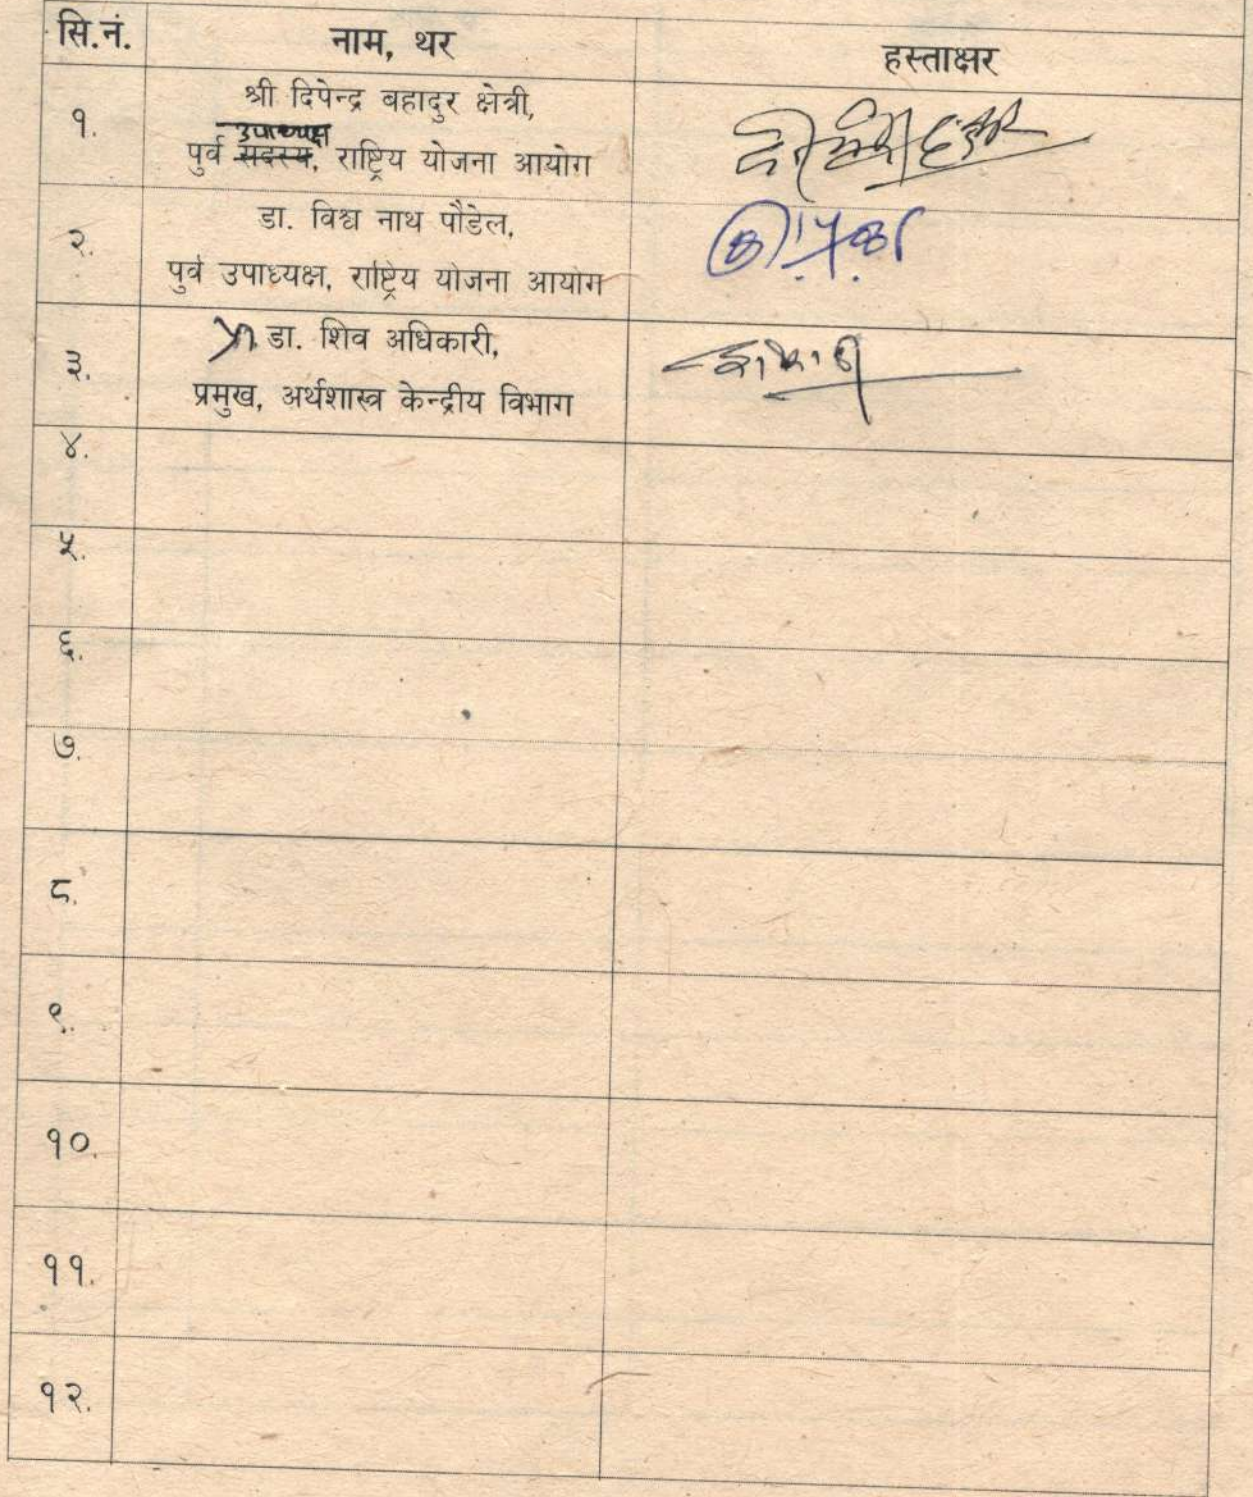 सि.नं. नाम, थर हस्ताक्षर
१. श्री दिपेन्द्र बहादुर क्षेत्री,
उपाध्यक्ष
पुर्व सदस्य, राष्ट्रिय योजना आयोग
२. डा. विश्व नाथ पौडेल,
पुर्व उपाध्यक्ष, राष्ट्रिय योजना आयोग
३. डा. शिव अधिकारी,
प्रमुख, अर्थशास्त्र केन्द्रीय विभाग
४.
५.
६.
७.
८.
९.
१०.
११.
१२.